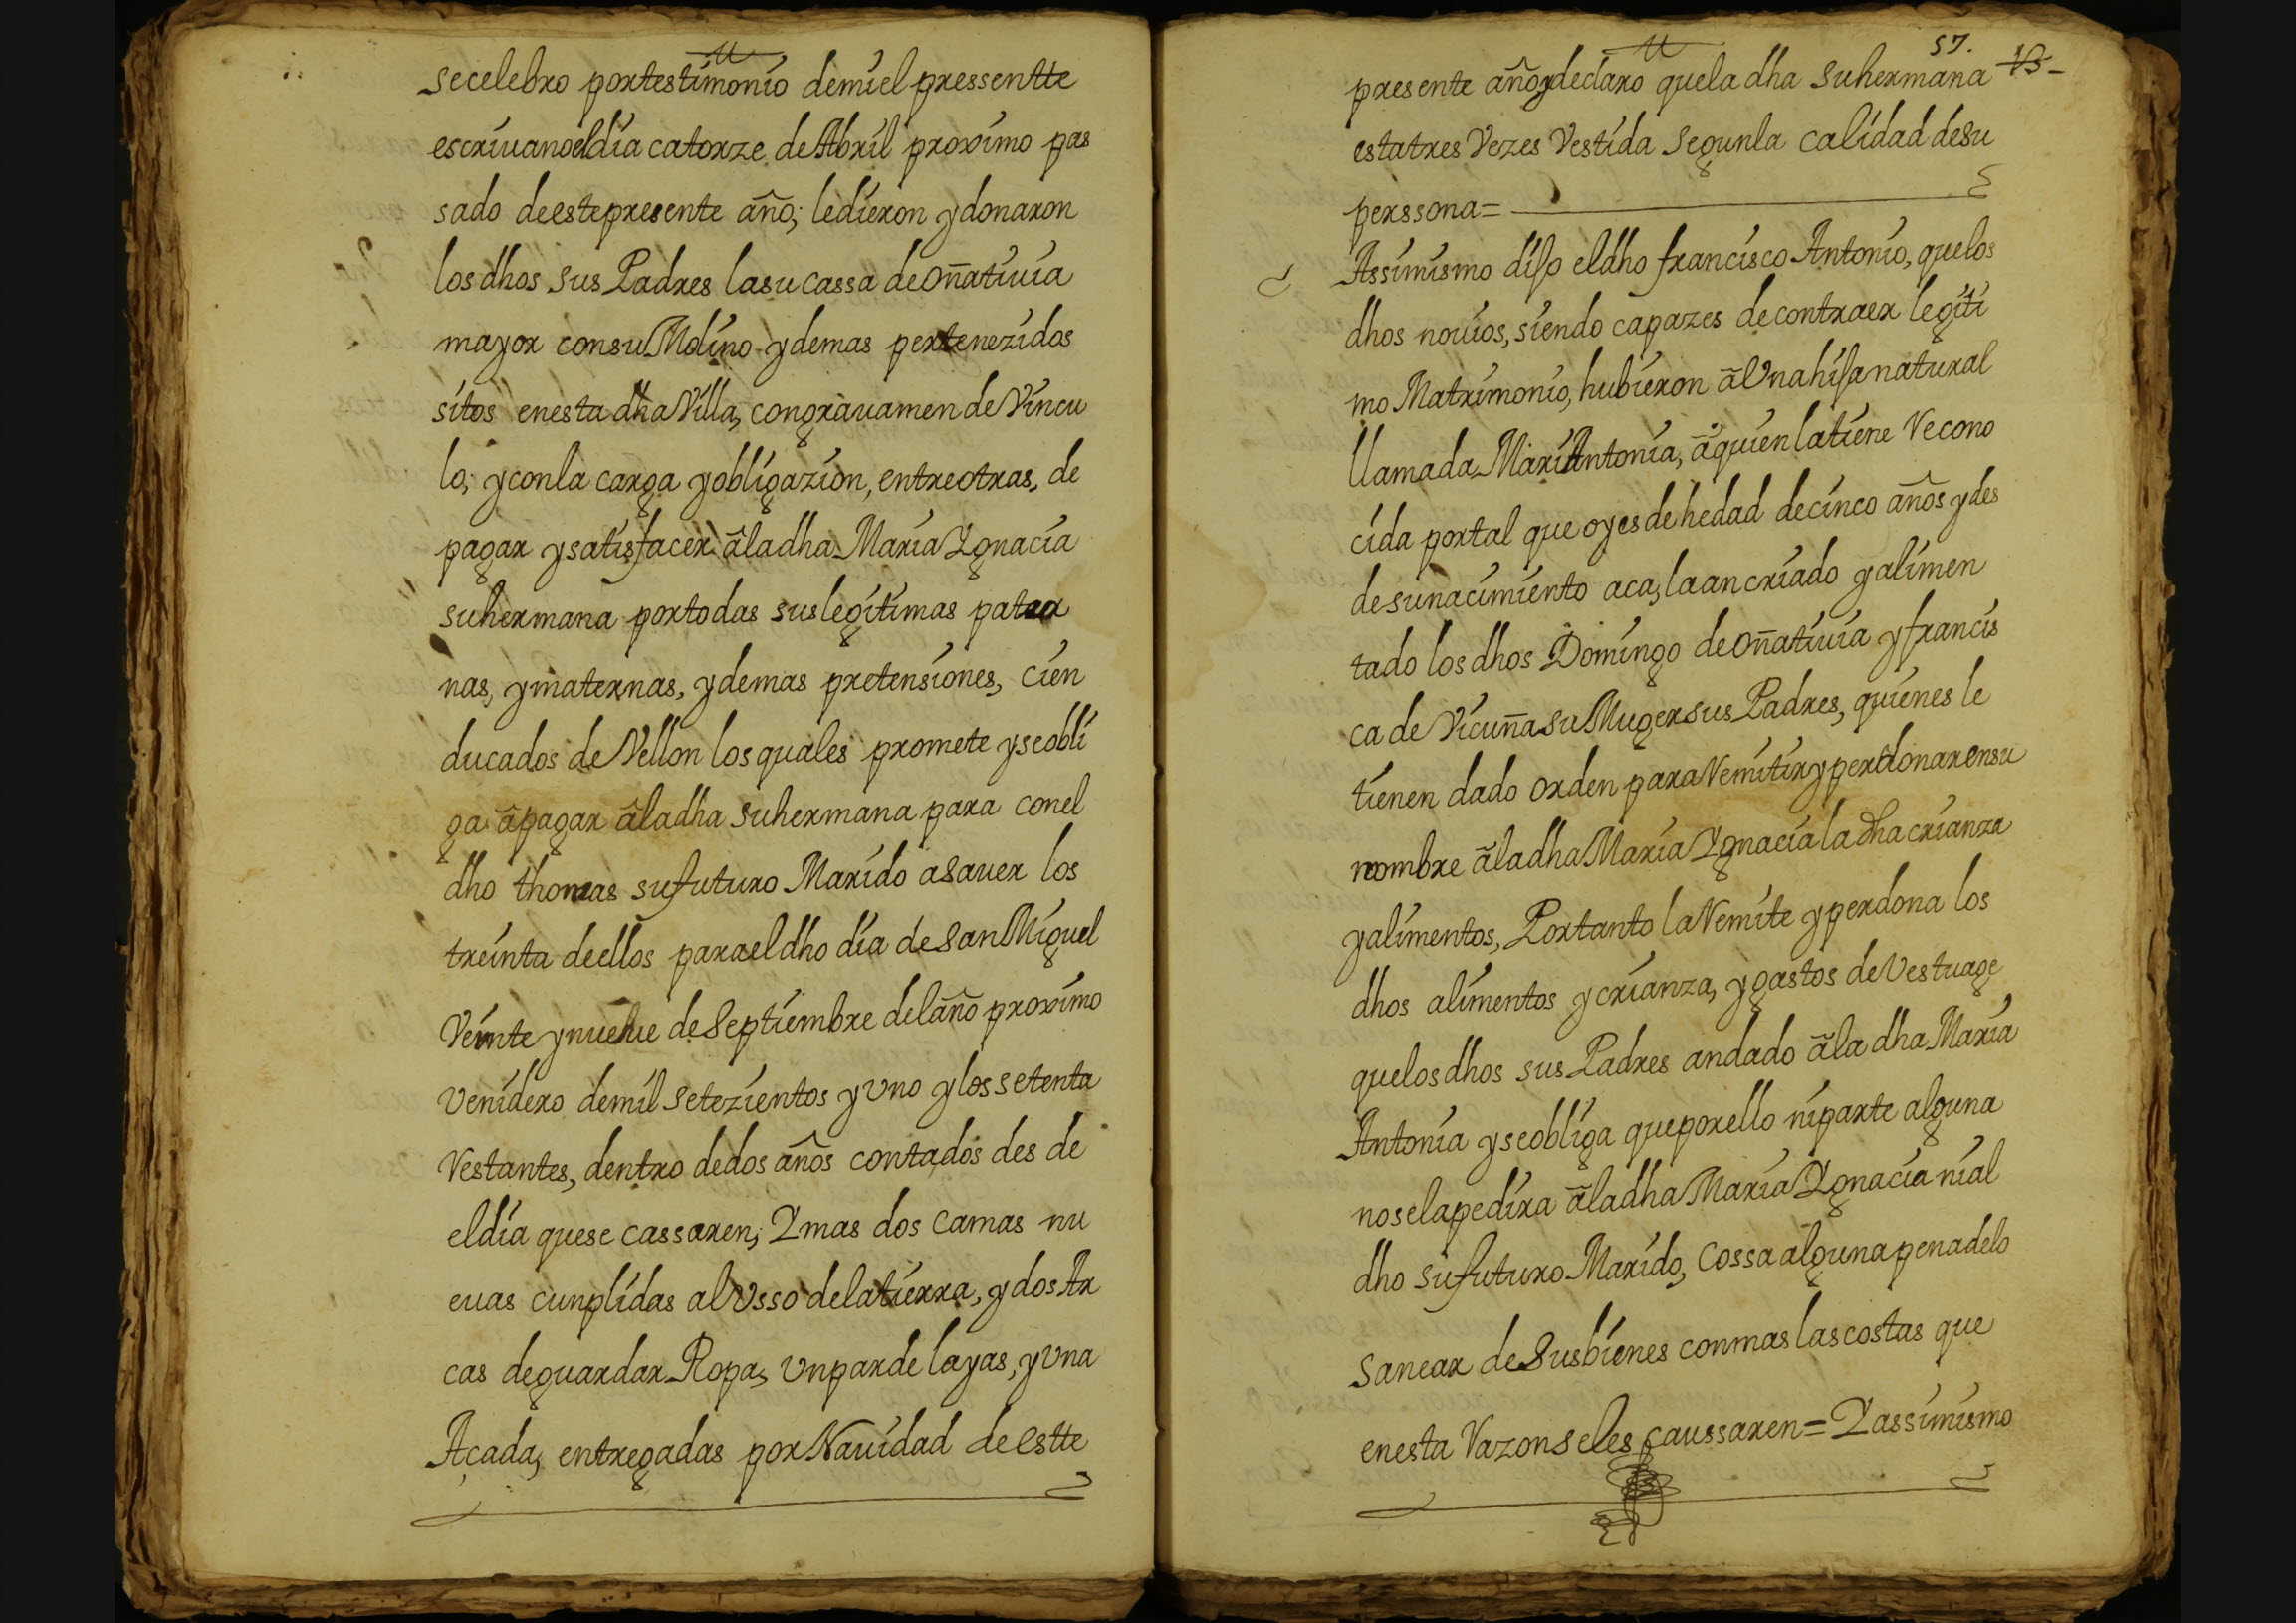 secelebro portestimonio demiel pressentte
escriuanoeldia catorze de Abril proximo pas
sado deestepresente año; ledieron y donaron
los dhos sus Padres lasu cassa de Oñatiuia
mayor consu Molino y demas pertenezidos
sitos enesta dha Villa, congrauamen de Vincu
lo; y conla carga y obligazion, entreotras, de
pagar y satisfacer âladha Maria Ygnacia
suhermana portodas suslegitimas pater
nas, y maternas, y demas pretensiones, cien
ducados de Vellon los quales promete y seobli
ga âpagar âladha suhermana para conel
dho thomas sufuturo Marido asauer los
treinta deellos parael dho dia de San Miguel
Veinte y nuebe de Septiembre delaño proximo
Venidero demil setezientos y Vno y los setenta
Restantes, dentro dedos años contados des de
eldia quese cassaren; Y mas dos camas nu
euas cunplidas al Vsso delatierra, y dos Ar
cas deguardar Ropa, Vnparde layas, y Vna
Açada, entregadas por Nauidad de estte
57.
presente año, y declaro quela dha suhermana
estatres Vezes Vestida segunla calidad desu
perssona=
Assimismo dijo eldho francisco Antonio, quelos
dhos nouios, siendo capazes decontraer legiti
mo Matrimonio, hubieron â Vnahija natural
llamada Mari Antonia, âquien latiene Recono
cida portal que oyes de hedad decinco años y des
desunacimiento aca, laan criado y alimen
tado los dhos Domingo de Oñatiuia y francis
ca de Vicuña su Muger sus Padres, quienes le
tienen dado orden para Remitir y perdonar ensu
nombre âladha Maria Ygnacia la dha crianza
y alimentos, Portanto la Remite y perdona los
dhos alimentos y crianza, y gastos de Vestuage
quelos dhos sus Padres andado âla dha Maria
Antonia y seobliga queporello niparte alguna
noselapedira âladha Maria Ygnacia nial
dho sufuturo Marido, cossa alguna penadelo
sanear de Susbienes conmas lascostas que
enesta Razon seles caussaren= Y assimismo